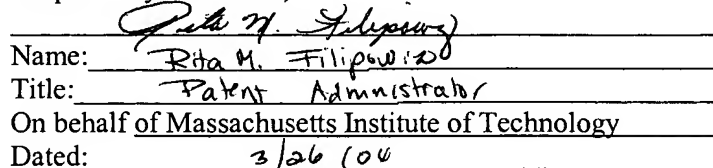 Rita M. Filipowicz
Name: Rita M. Filipowicz
Title: Patent Admnistrator
On behalf of Massachusetts Institute of Technology
Dated: 3/26/04